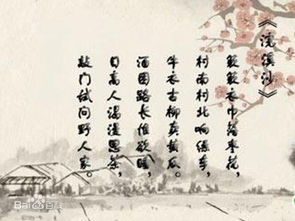 《浣溪沙》
簌簌衣巾落枣花，
村南村北响缲车，
牛衣古柳卖黄瓜。
酒困路长惟欲睡，
日高人渴漫思茶，
敲门试问野人家。
Baidu百科